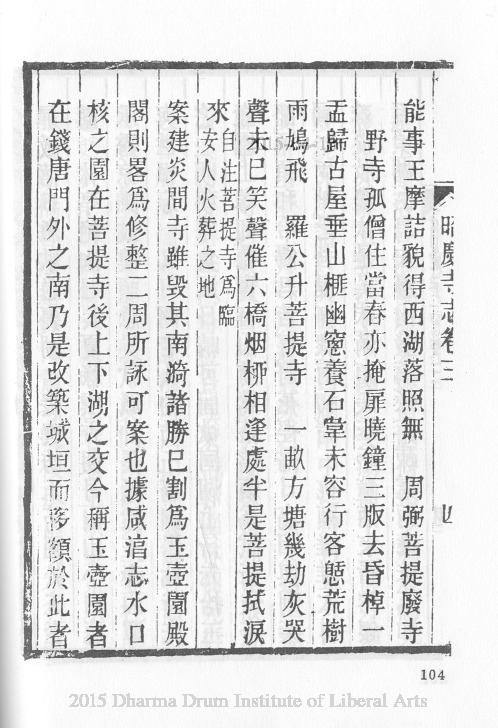 能事王摩詰貌得西湖落照無　周弼菩提廢寺
野寺孤僧住當春亦掩扉曉鐘三版去昏棹一
盂歸古屋垂山榧幽窓養石韋未容行客憇荒樹
雨鳩飛　羅公升菩提寺　一畝方塘幾劫灰哭
聲未巳笑聲催六橋烟栁相逢處半是菩提拭淚
來
自注菩提寺爲臨
安人火葬之地
案建炎間寺雖毀其南漪諸勝巳割爲玉壺園殿
閣則畧爲修整二周所詠可案也據咸湻志水口
核之園在菩提寺後上下湖之交今稱玉壺園者
在錢唐門外之南乃是改築城垣而移額於此者
昭慶寺志卷三
四
104
2015 Dharma Drum Institute of Liberal Arts